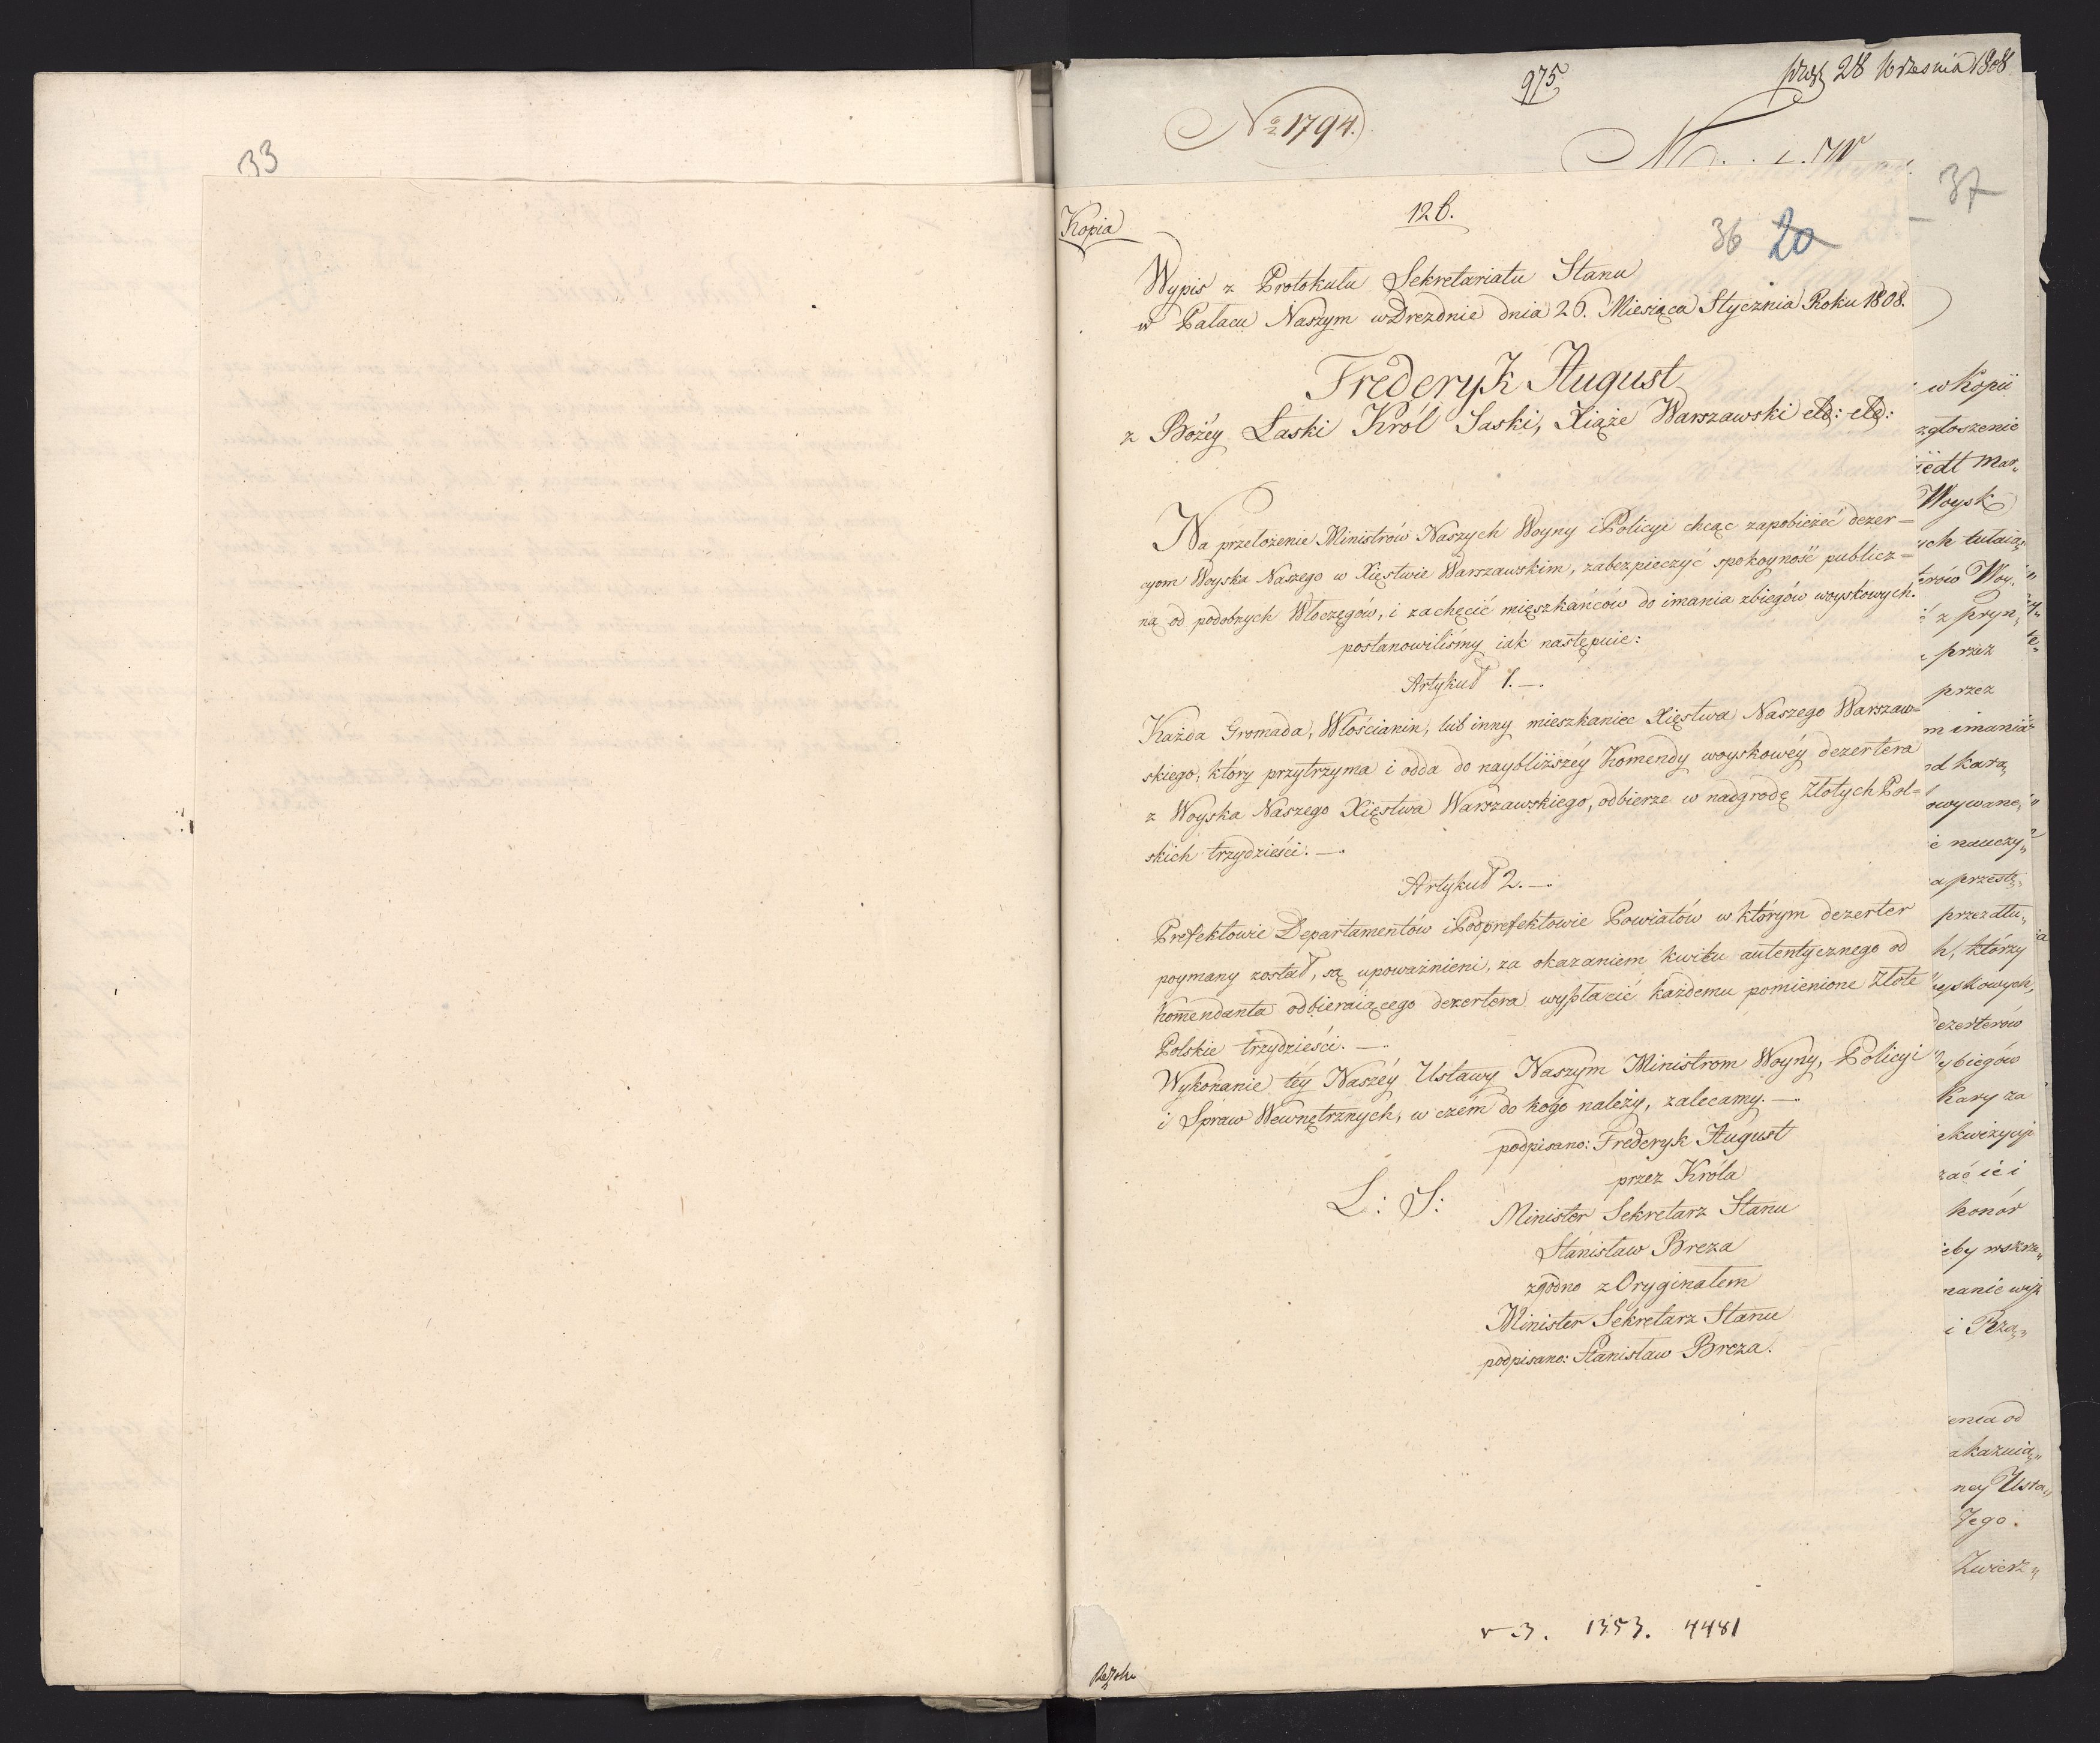 33
975
28 Września 1808
No 1794.
37
Kopia
126.
36 20
Wypis z Protokułu Sekretariatu Stanu
w Pałacu Naszym w Dreznie dnia 26. Miesiąca Stycznia Roku 1808.
Frederyk August
z Bożéy Łaski Król Saski, Xiąże Warszawski etc: etc:
Na przełożenie Ministrów Naszych Woyny i Policyi chcąc zapobieżeć dezer=
cyom Woyska Naszego w Xięstwie Warszawskim, zabezpieczyć spokoyność publicz=
ną od podobnych Włóczęgów, i zachęcić mięszkańców do imania zbiegów woyskowych.
postanowiliśmy iak następuie:
Artykuł 1.—.
Każda Gromada, Włościanin, lub inny mieszkaniec Xięstwa Naszego Warszaw=
skiego, który przytrzyma i odda do naybliższéy Komendy woyskowéy dezertera
z Woyska Naszego Xięstwa Warszawskiego, odbierze w nadgrodę Złotych Pol=
skich trzydzieści.—.
Artykuł 2.—.
Prefektowie Departamentów i Podprefektowie Powiatów w którym dezerter
poymany został, są upoważnieni, za okazaniem kwitu autentycznego od
Komendanta odbieraiącego dezertera wypłacić każdemu pomienione Złote
Polskie trzydzieści.—.
Wykonanie téy Naszéy Ustawy Naszym Ministrom Woyny, Policyi
i Spraw Wewnętrznych, w czém do kogo należy, zalecamy.—.
podpisano: Frederyk August
przez Króla
L: S:
Minister Sekretarz Stanu
Stanisław Breza
zgodno z Oryginałem
Minister Sekretarz Stanu
podpisano: Stanisław Breza.
w Kopii
zgłoszenie
Woysk
z pryn„
przez
przez
imania
kara„
nauczy„
przez dłu„
którzy
dezerterów
Kary za
honór
i Rzą„
od
ney Usta„
Jego.
Zwierz„
1353. 4481